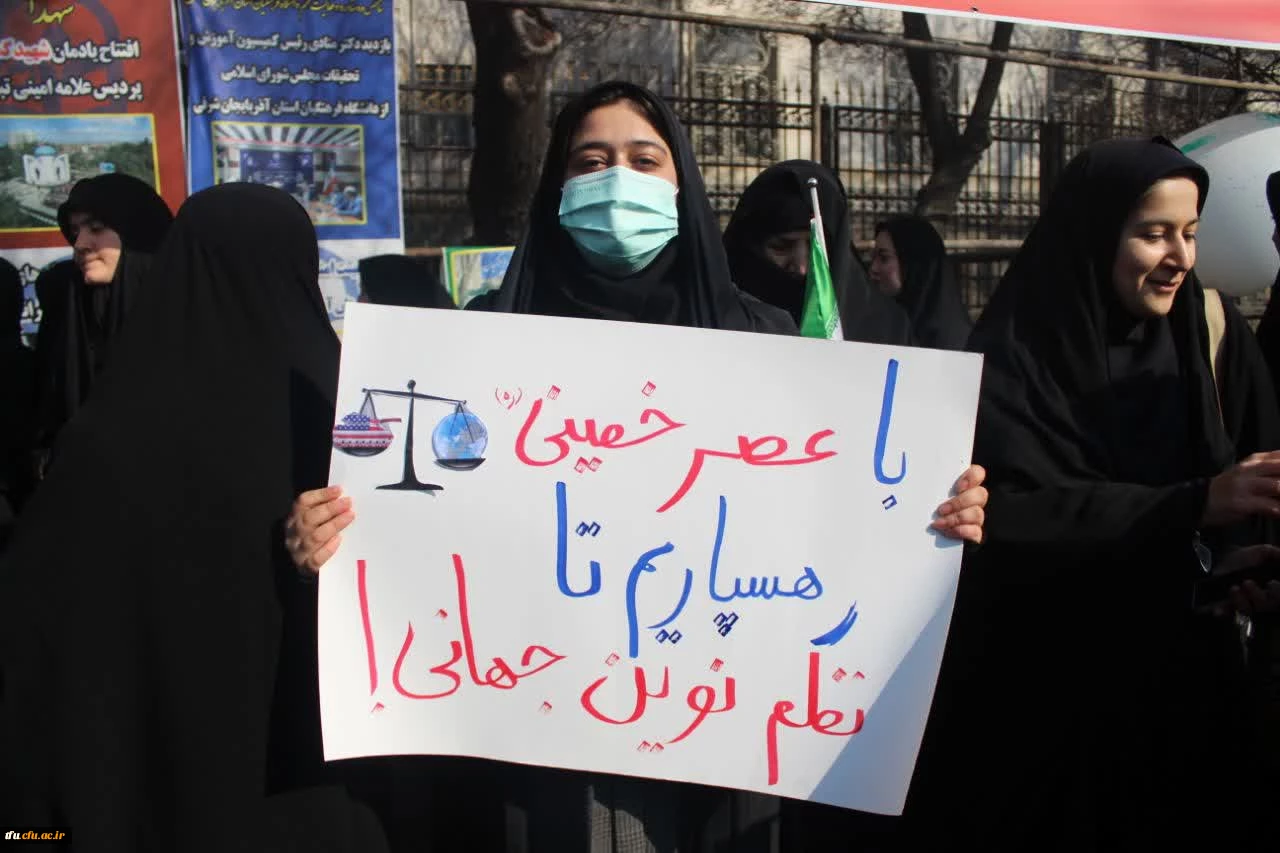 شهدا
افتتاح یادمان شهید
پردیس علامه امینی
بازدید دکتر منادی رئیس کمیسیون آموزش و
تحقیقات مجلس شورای اسلامی
از دانشگاه فرهنگیان استان آذربایجان شرقی
با عصر خمینی (ره)
رهسپاریم تا
نظم نوین جهانی!
tfu.cfu.ac.ir